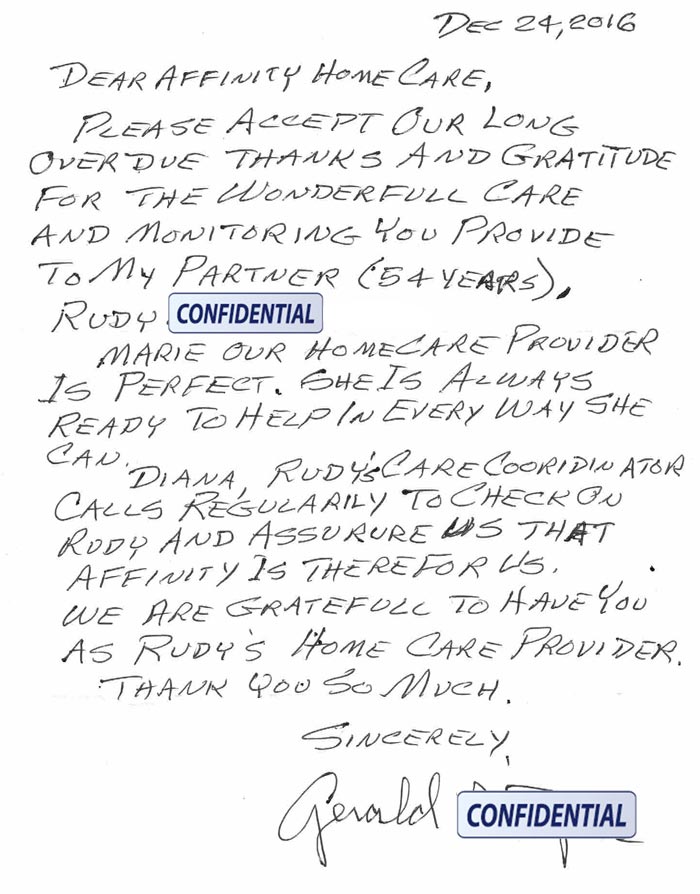 DEC 24, 2016
DEAR AFFINITY HOME CARE,
PLEASE ACCEPT OUR LONG
OVERDUE THANKS AND GRATITUDE
FOR THE WONDERFULL CARE
AND MONITORING YOU PROVIDE
TO MY PARTNER (54 YEARS),
RUDY CONFIDENTIAL
MARIE OUR HOMECARE PROVIDER
IS PERFECT. SHE IS ALWAYS
READY TO HELP IN EVERY WAY SHE
CAN.
DIANA, RUDY'S CARE COORIDINATOR
CALLS REGULARILY TO CHECK ON
RUDY AND ASSURURE US THAT
AFFINITY IS THERE FOR US.
WE ARE GRATEFULL TO HAVE YOU
AS RUDY'S HOME CARE PROVIDER.
THANK YOU SO MUCH.
SINCERELY,
Gerald CONFIDENTIAL